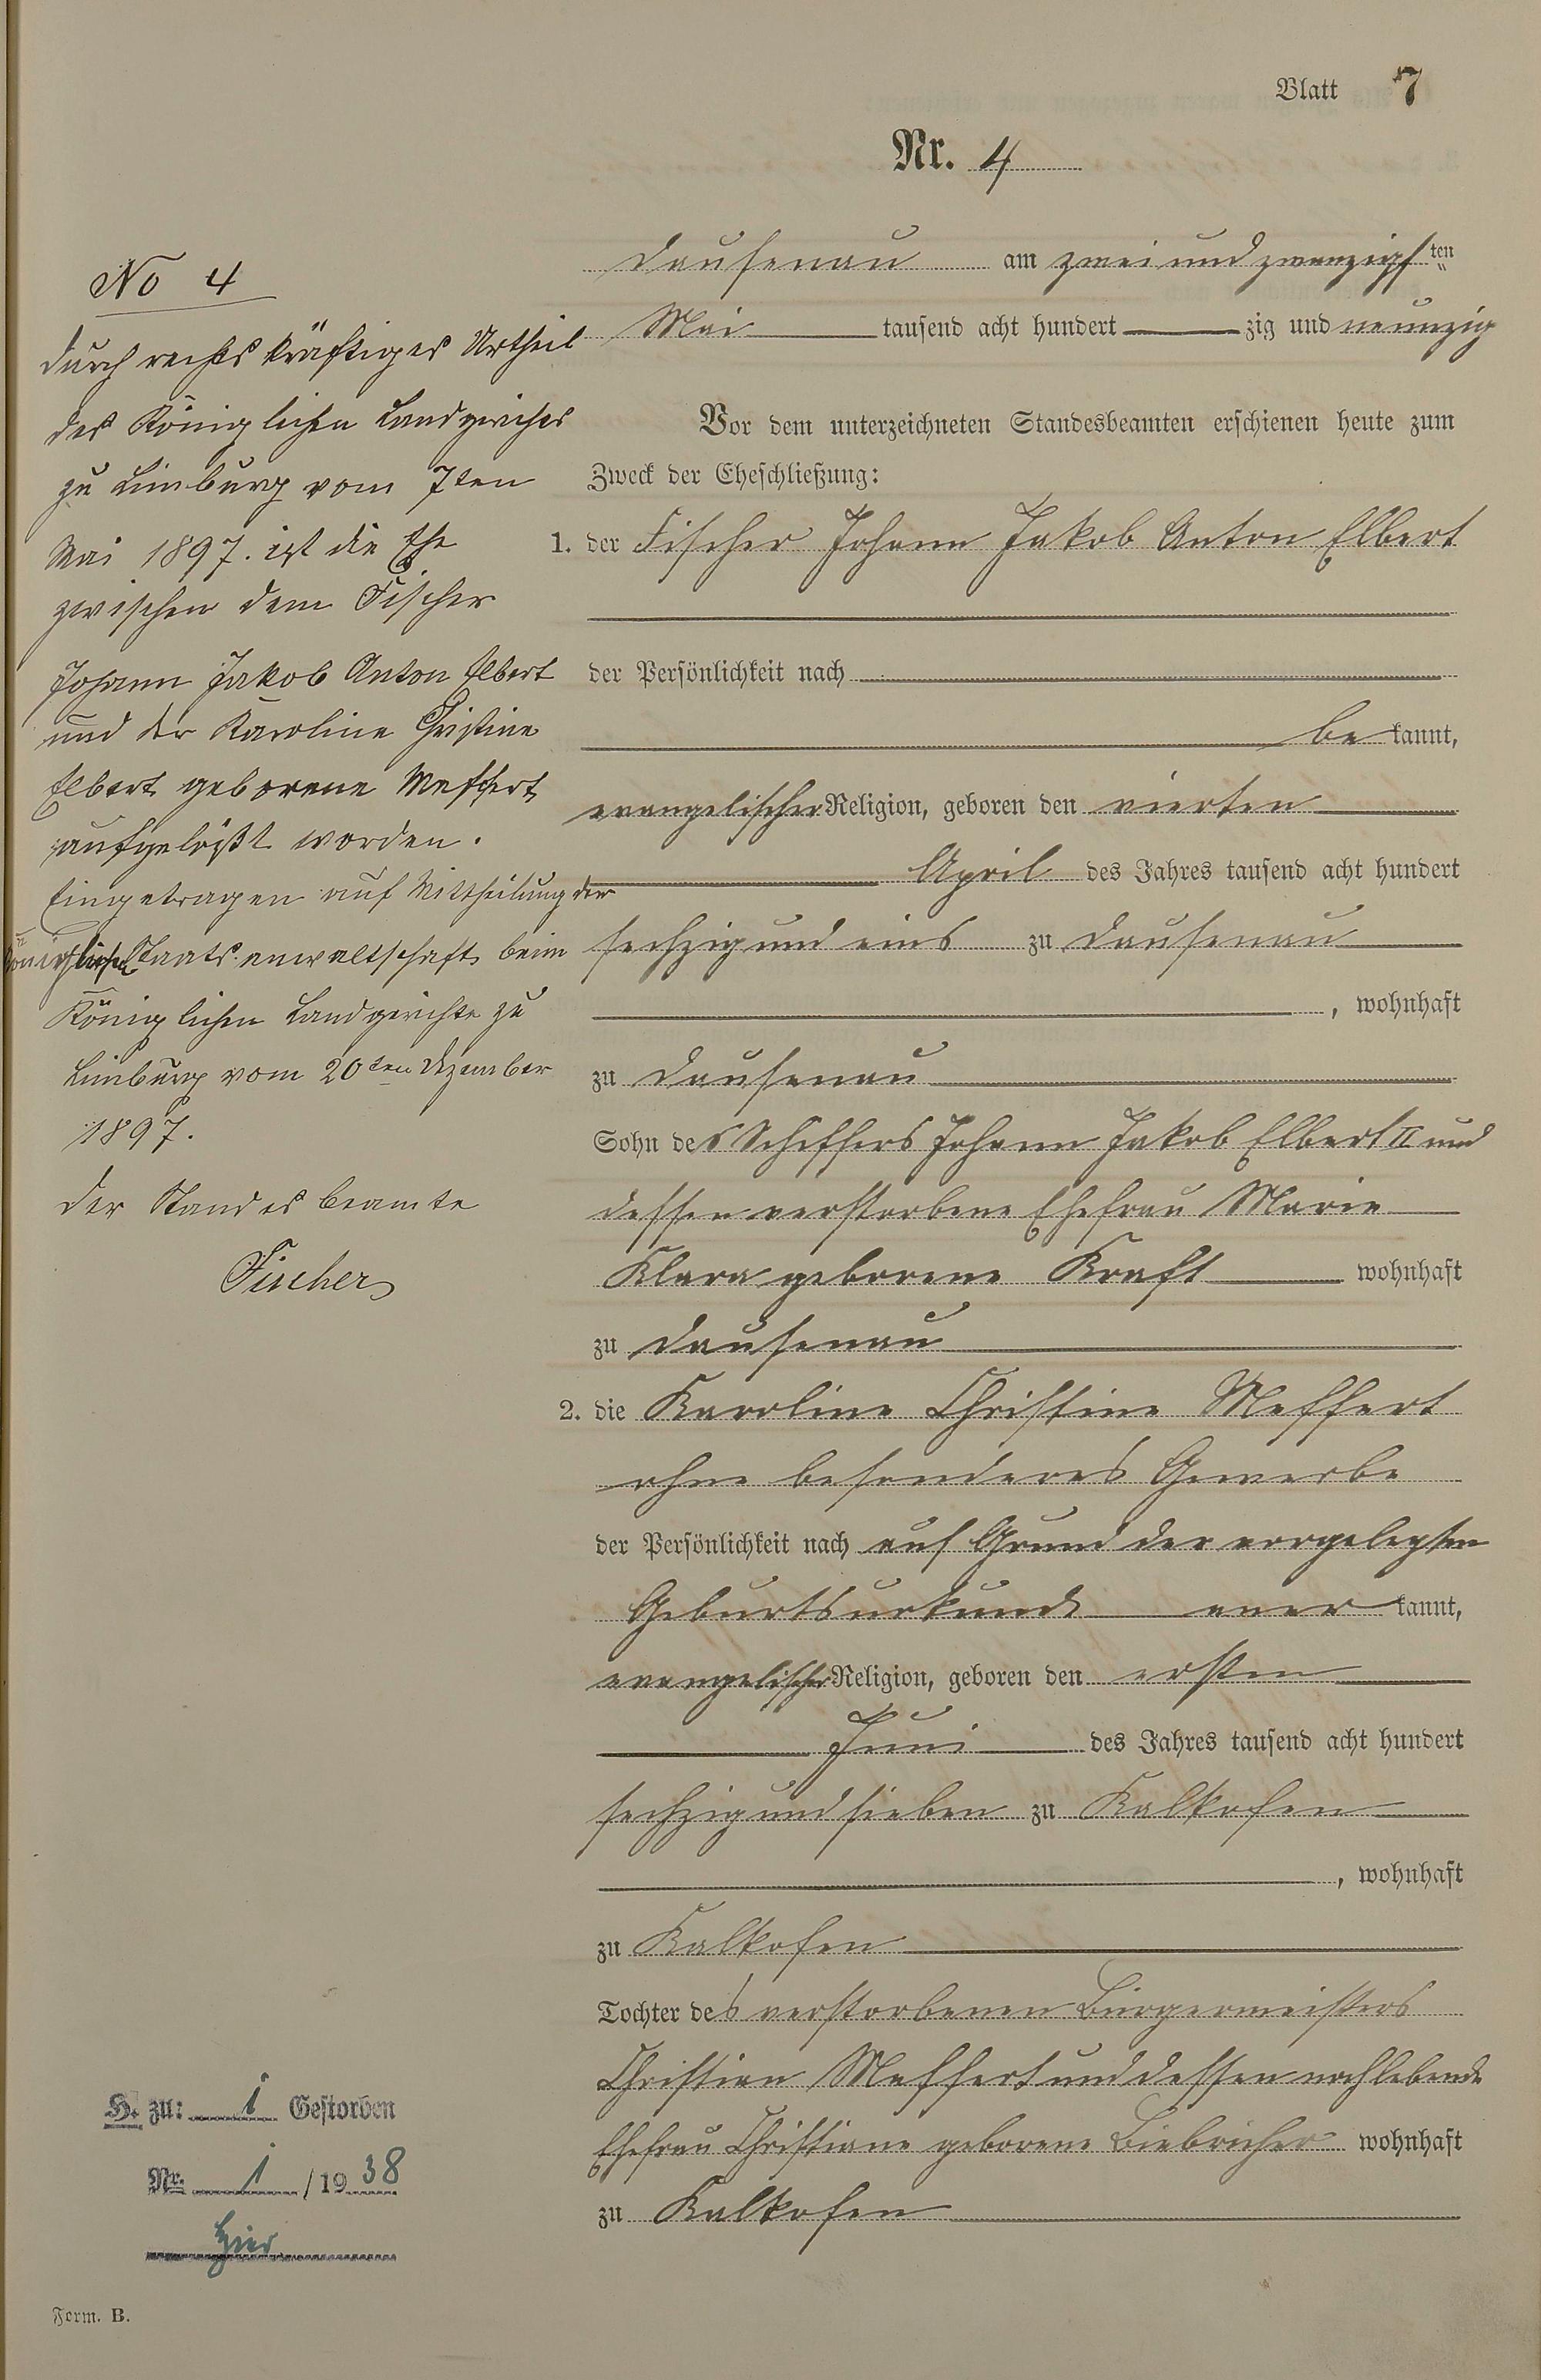 Blatt 7
Nr. 4
Dausenau am zwei und zwanzigsten
Mai tausend acht hundert zig und neunzig
Vor dem unterzeichneten Standesbeamten erschienen heute zum
Zweck der Eheschließung:
1. der Fischer Johann Jakob Anton Elbert
der Persönlichkeit nach
be kannt,
evangelischer Religion, geboren den vierten
April des Jahres tausend acht hundert
sechzig und eins zu Dausenau
, wohnhaft
zu Dausenau
Sohn des Schiffers Johann Jakob Elbert II und
dessen verstorbene Ehefrau Marie
Klara geborene Kraft wohnhaft
zu Dausenau
2. die Karoline Christine Meffert
ohne besonderes Gewerbe
der Persönlichkeit nach auf Grund der vorgelegten
Geburtsurkunde aner kannt,
evangelischer Religion, geboren den ersten
Juni des Jahres tausend acht hundert
sechzig und sieben zu Kalkofen
, wohnhaft
zu Kalkofen
Tochter des verstorbenen Bürgermeisters
Christian Meffert und dessen noch lebende
Ehefrau Christiane geborene Biebricher wohnhaft
zu Kalkofen
No 4
Durch rechtskräftiges Urtheil
des Königlichen Landgerichts
zu Limburg vom 7ten
Mai 1897. ist die Ehe
zwischen dem Fischer
Johann Jakob Anton Elbert
und der Karoline Christine
Elbert geborene Meffert
aufgelößt worden.
Eingetragen auf Mittheilung der
Königlichen Staatsanwaltschaft beim
Königlichen Landgerichte zu
Limburg vom 20ten Dezember
1897.
Der Standesbeamte
Fischer
H. zu: 1 Gestorben
Nr. 1 /19 38
hier
Form. B.